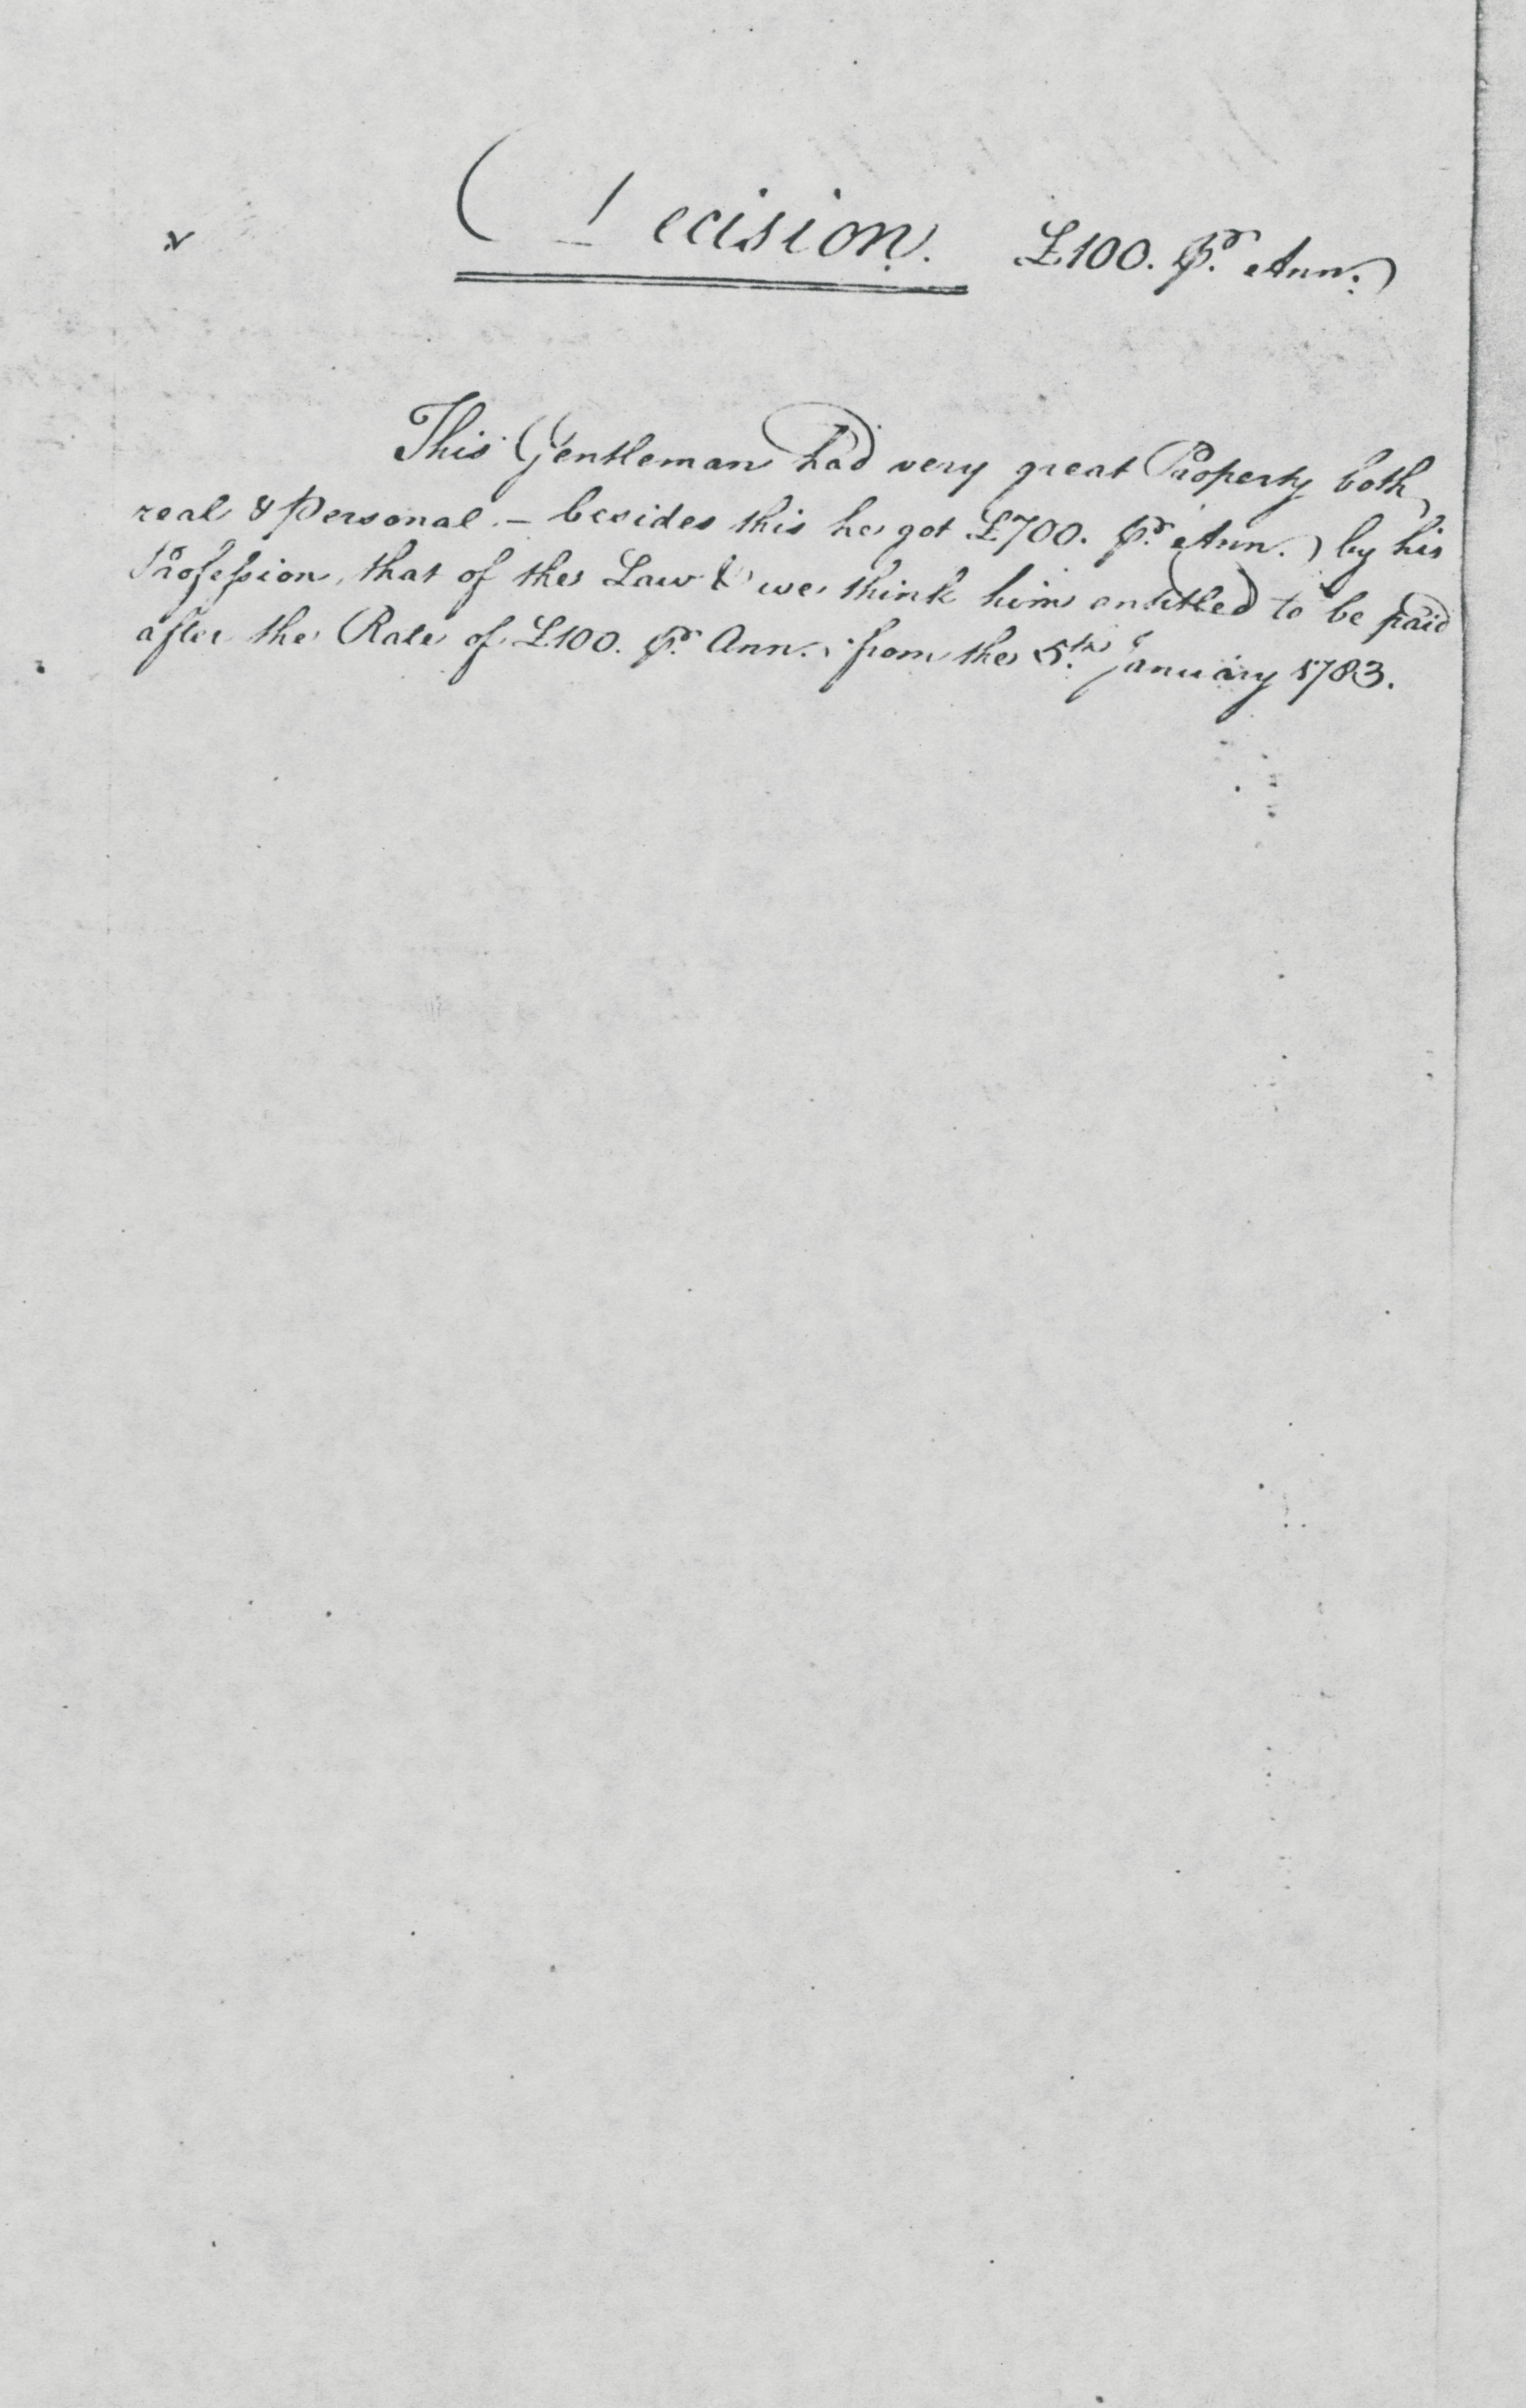 Decision. £100. Pr. Ann.
This Gentleman had very great Property both
real & Personal. – besides this he got £700. Pr. Ann. by his
Profession, that of the Law & we think him entitled to be paid
after the Rate of £100. Pr. Ann. from the 5th. January 1783.